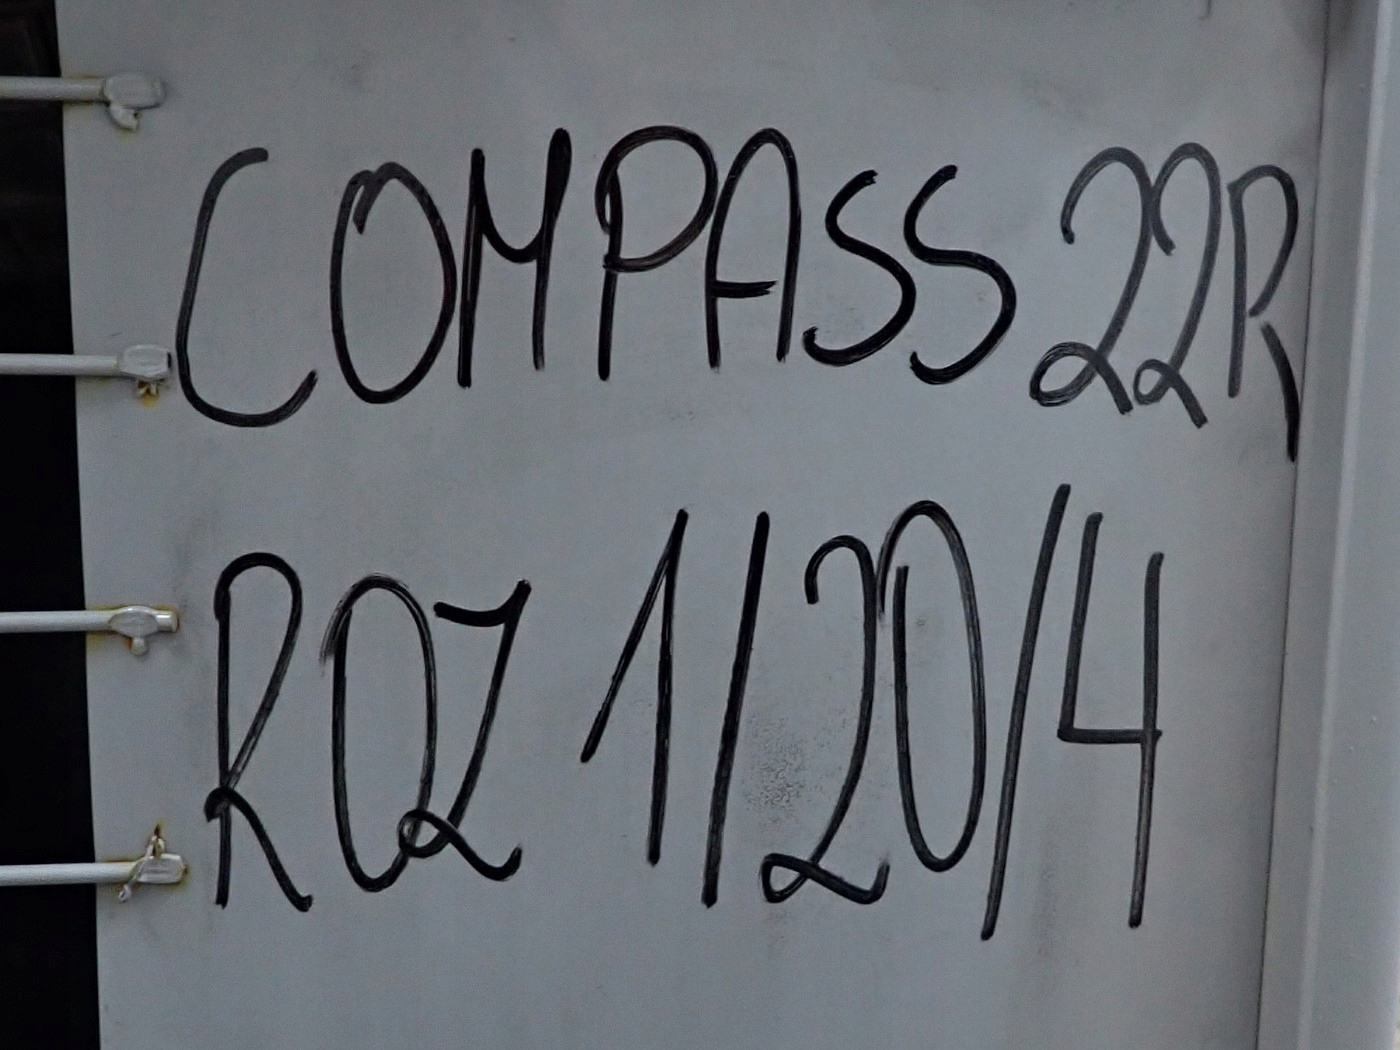 COMPASS 22R
ROZ 1/20/4